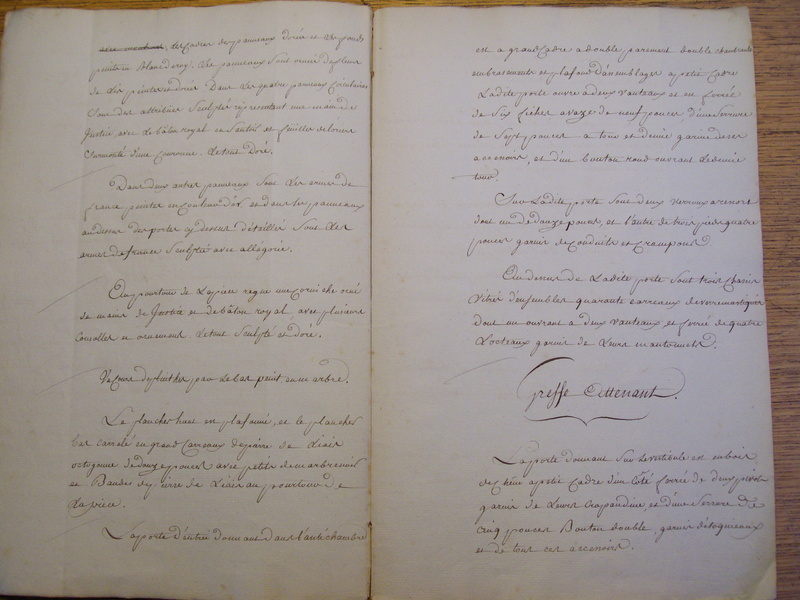 des Cadres des panneaux dorée et les fonds
peint en Blanc de roy. Les panneaux sont remis de fleur
de Lis peintes et dorée Dans Les quatre panneaux Circulaires
Sont des attributs Sculpté représentant une main de
Justice avec Le bâton royal en Sautoir et feuilles de lorier
Surmonté d'une Couronne. Le tout doré.
Dans deux autres panneaux Sont Les armes de
france peintes en et dans les panneaux
au dessus des portes cy dessus détaillée Sont Les
armes de france Sculpté avec allégorie.
Au pourtour de La piece regne une Corniche orné
de main de Justice et de bâton royal avec plusieurs
et ornement. Le tout Sculpté et doré.
par Le bas peint en marbre.
Le plancher haut en plafonné, et le plancher
bas carrelé en grand Carreaux de pierre de Liais
octogonne de douze pouces avec petits de marbre noir
et Bandes de pierre de Liais au pourtour de
La piece.
La porte d'entrée donnant dans l'antichambre
est a grand Cadre a double parement double chambranle
embrasements et plafond d'assemblages a petit Cadre
Ladite porte ouvre a deux vanteaux et est ferrée
de Six fiches a vaze de neuf pouces, d'une Serrure
de Sept pouces a tour et demie garnie de ses
accesoirs, et d'un bouton rond ouvrant le demie
tour.
Sur Ladite porte Sont deux verroux a ressort
dont un de douze pouces, et l'autre de trois pieds quatre
pouces garnis de Conduits et Crampons
Au dessus de Ladite porte Sont trois Chassis
Vitrés d'ensembles quarante Carreaux de verre
dont un ouvrant a deux Vanteaux et ferré de quatre
garnis de Leurs mantonnets.
Greffe Attenant.
La porte donnant Sur Le vestibule est en bois
de Chêne a petit Cadre d'un Coté ferrée de deux pivots
garnis de Leurs Crapaudine et d'une Serrure De
Cinq pouces Bouton double, garnis d'étoquieaux
et de tous ces accesoirs.